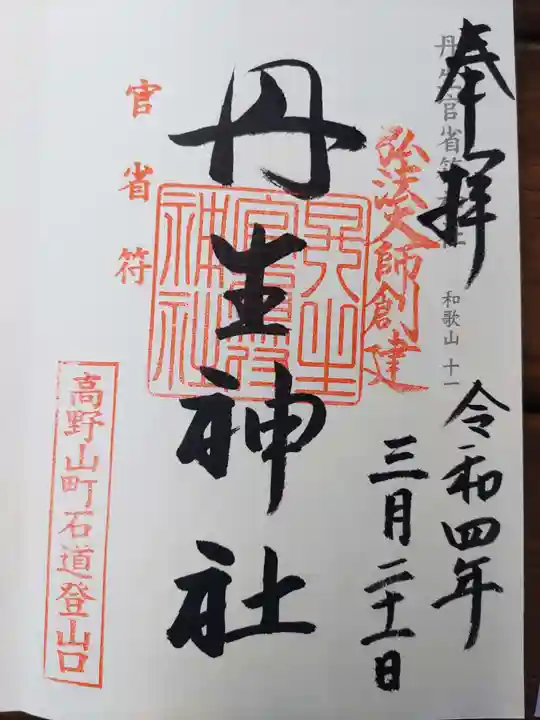 奉拝
丹生官省符神社
和歌山 十一
令和四年
三月二十一日
弘法大師創建
丹生神社
丹生官省符神社
官省符
高野山町石道登山口